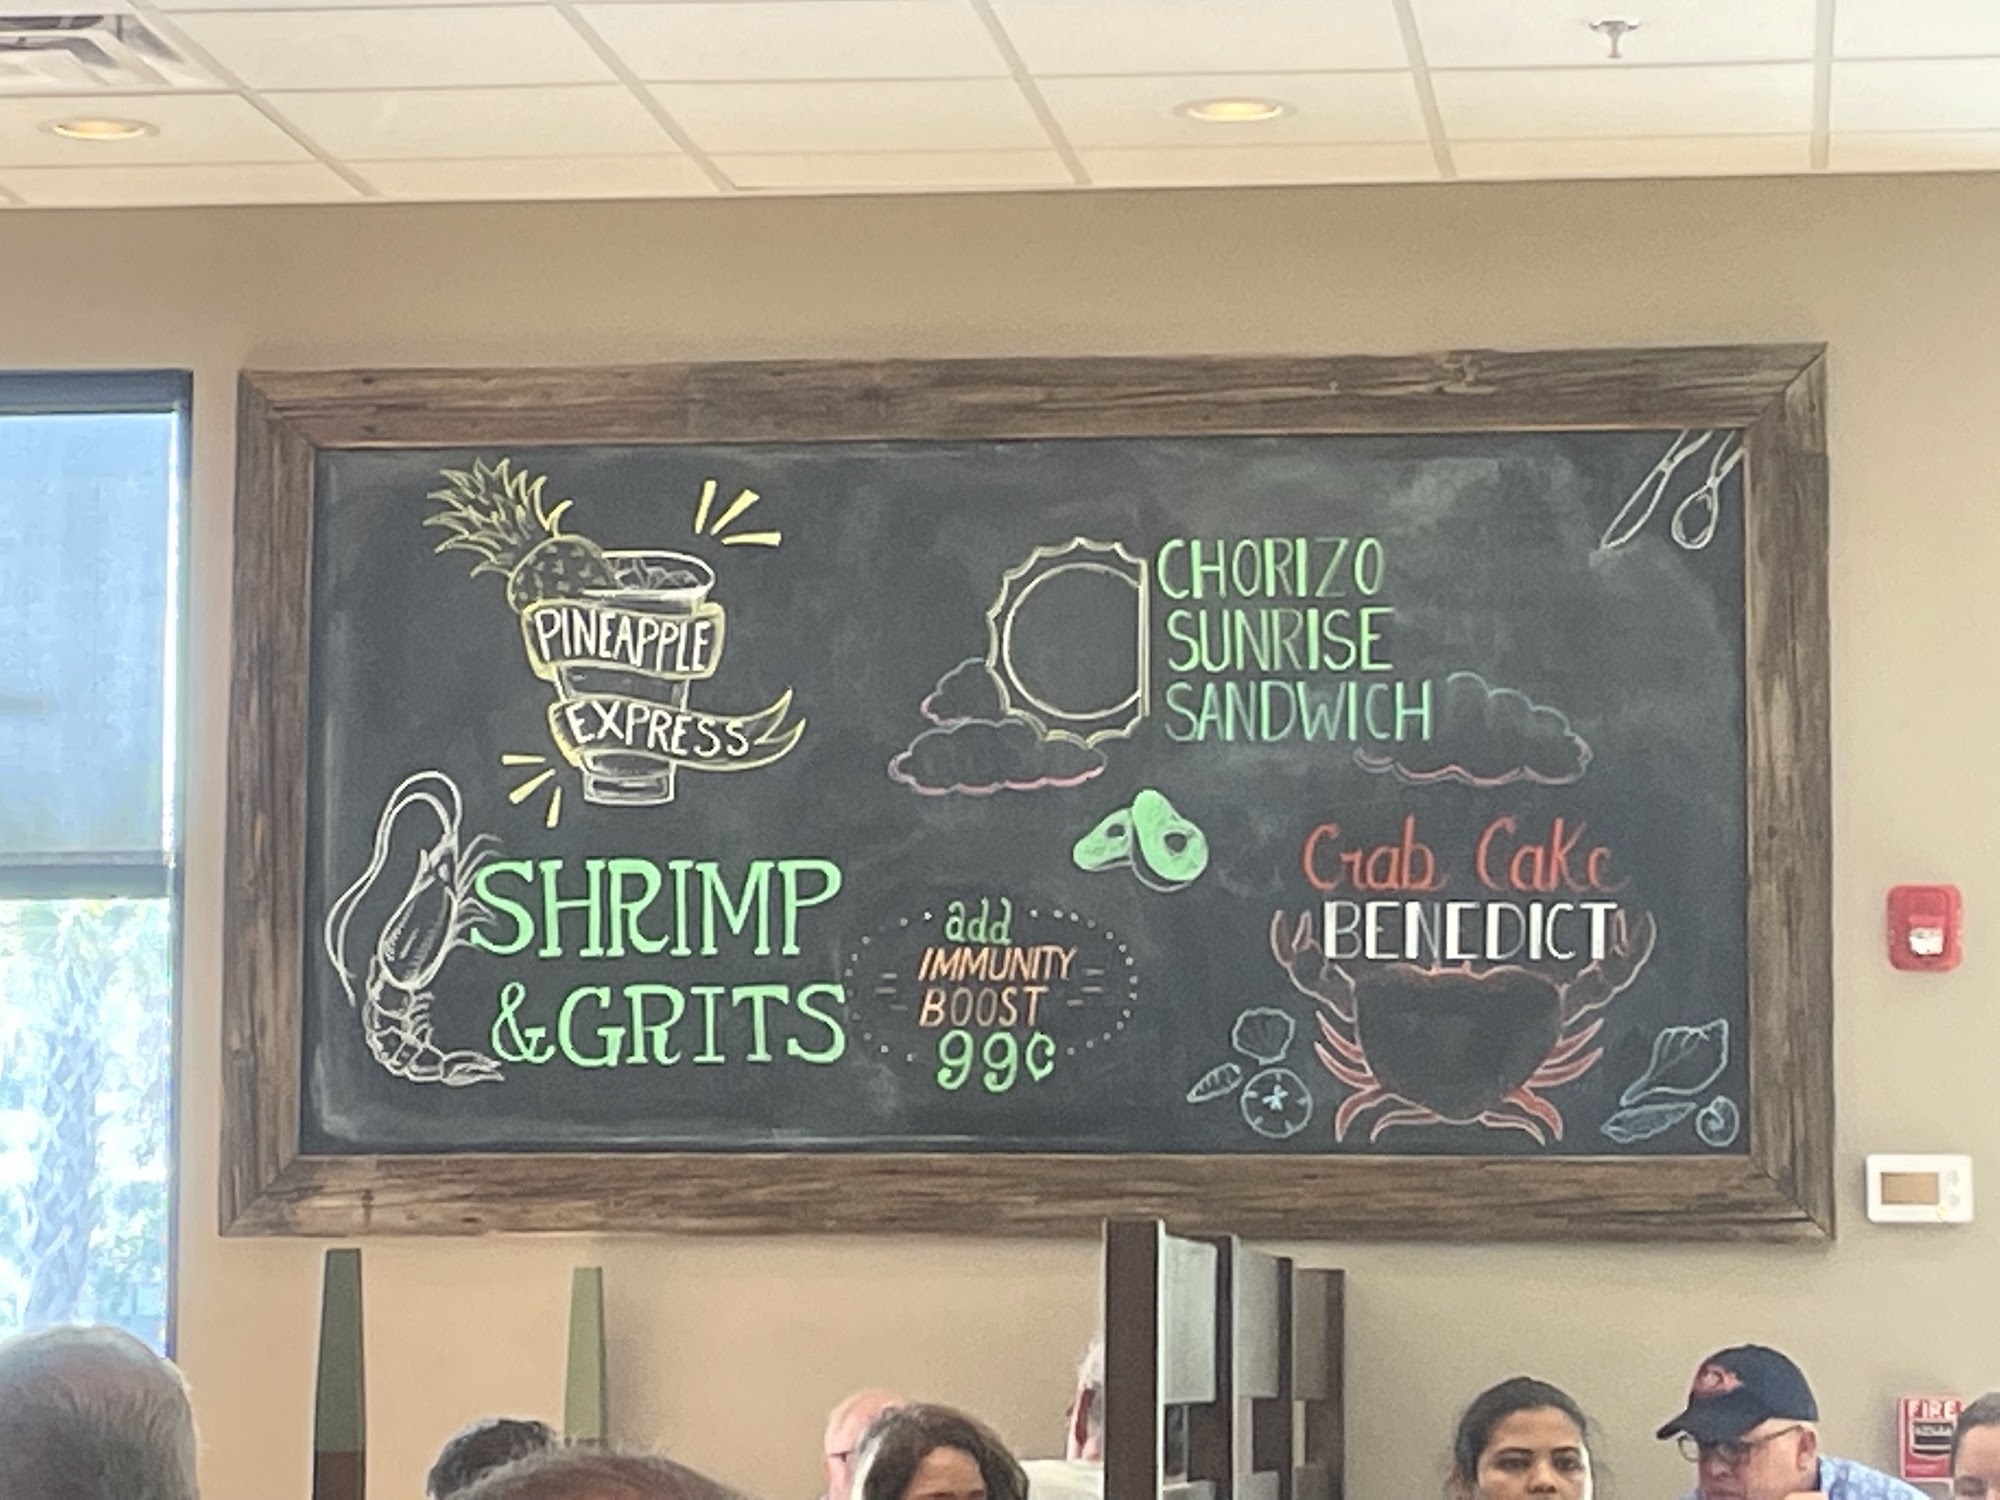 PINEAPPLE
EXPRESS
CHORIZO
SUNRISE
SANDWICH
SHRIMP
& GRITS
add
IMMUNITY
BOOST
99¢
Crab Cake
BENEDICT
FIRE